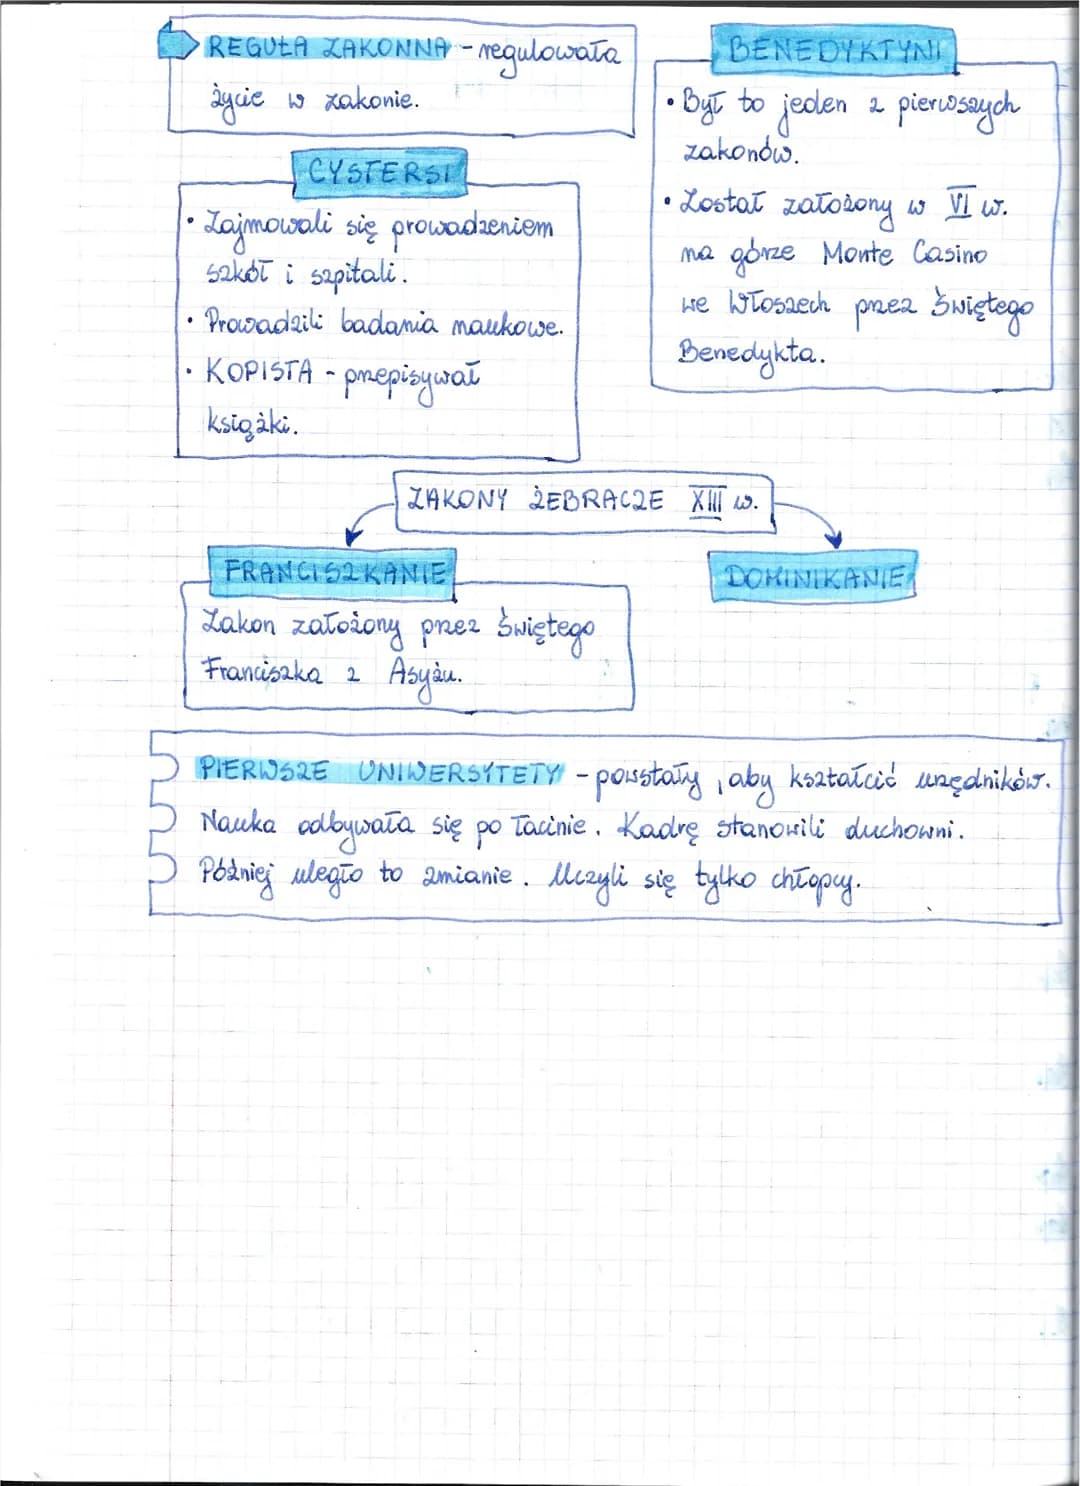 REGUŁA ZAKONNA - regulowała
życie w zakonie.
BENEDYKTYNI
• Był to jeden z pierwszych
zakonów.
• Został założony w VI w.
na górze Monte Casino
we Włoszech przez Świętego
Benedykta.
CYSTERSI
• Zajmowali się prowadzeniem
szkół i szpitali.
• Prowadzili badania naukowe.
• KOPISTA - przepisywał
książki.
ZAKONY ŻEBRACZE XIII w.
FRANCISZKANIE
Zakon założony przez Świętego
Franciszka z Asyżu.
DOMINIKANIE
PIERWSZE UNIWERSYTETY - powstały, aby kształcić urzędników.
Nauka odbywała się po łacinie. Kadrę stanowili duchowni.
Później uległo to zmianie. Uczyli się tylko chłopcy.